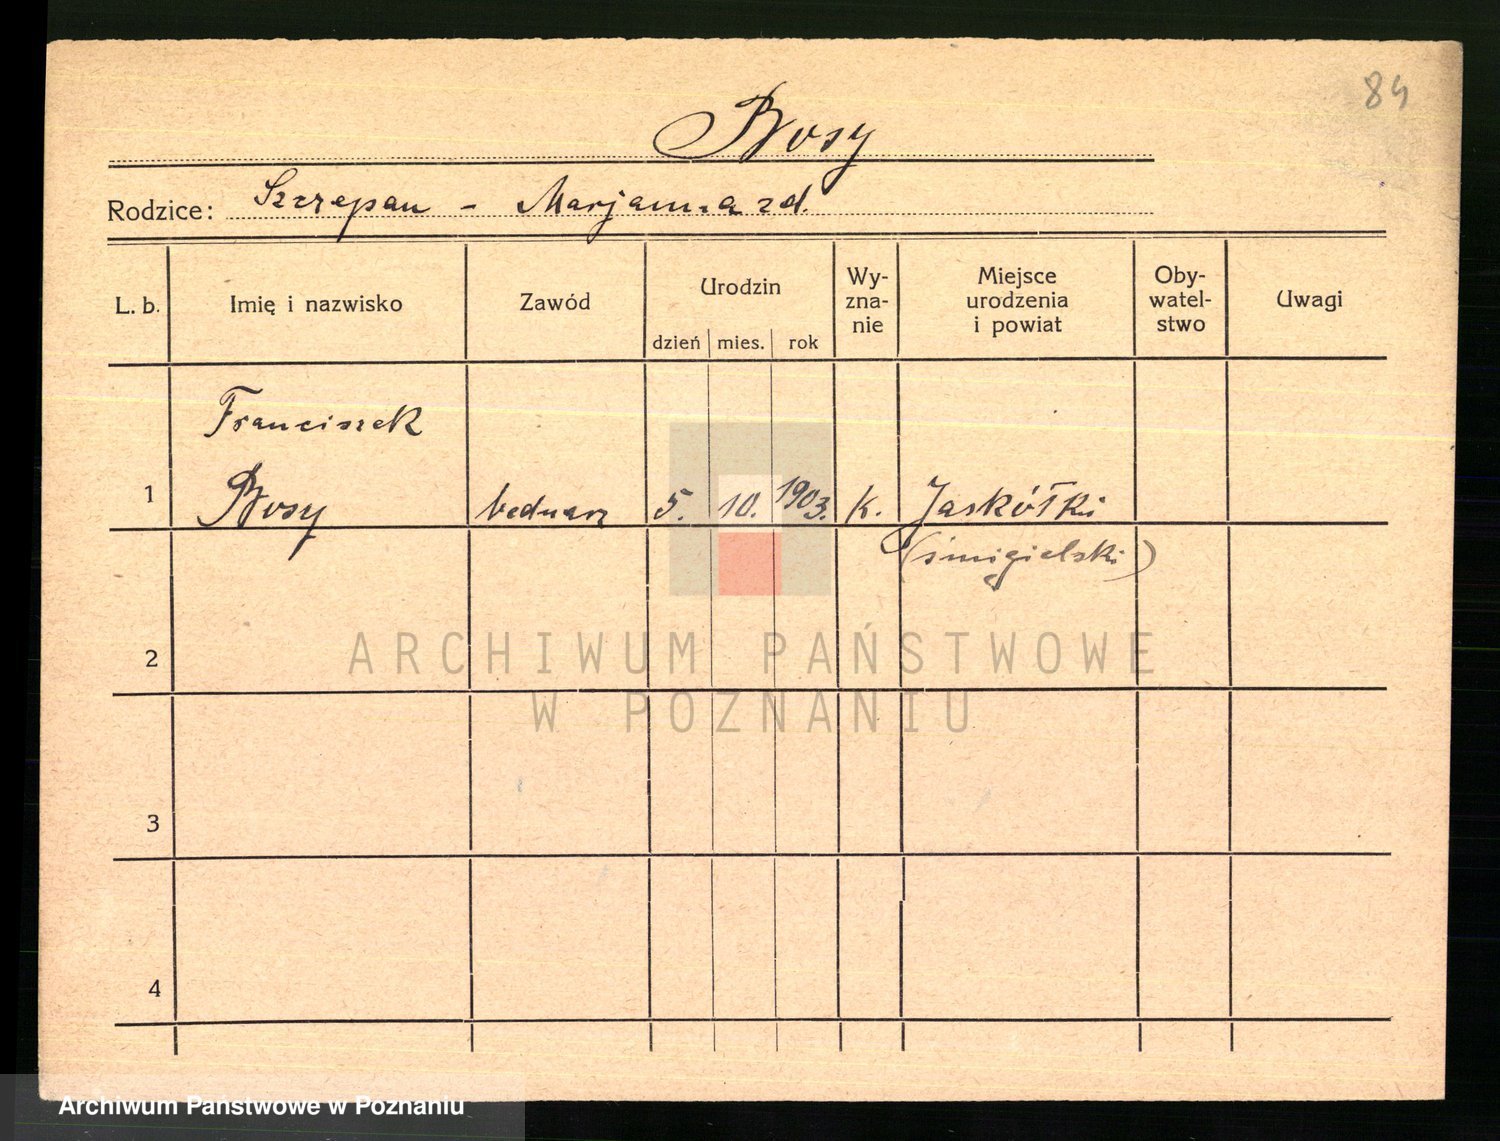 84
Bosy
Rodzice: Szczepan - Marjanna zd.
L. b. Imię i nazwisko Zawód Urodzin dzień mies. rok Wy-zna-nie Miejsce urodzenia i powiat Oby-watel-stwo Uwagi
Franciszek
1 Bosy bednarz 5. 10. 1903. k. Jaskółki
(śmigielski)
2
ARCHIWUM PAŃSTWOWE
W POZNANIU
3
4
Archiwum Państwowe w Poznaniu